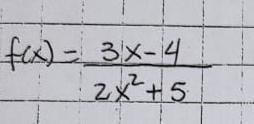 f(x) = 3x-4 / 2x²+5